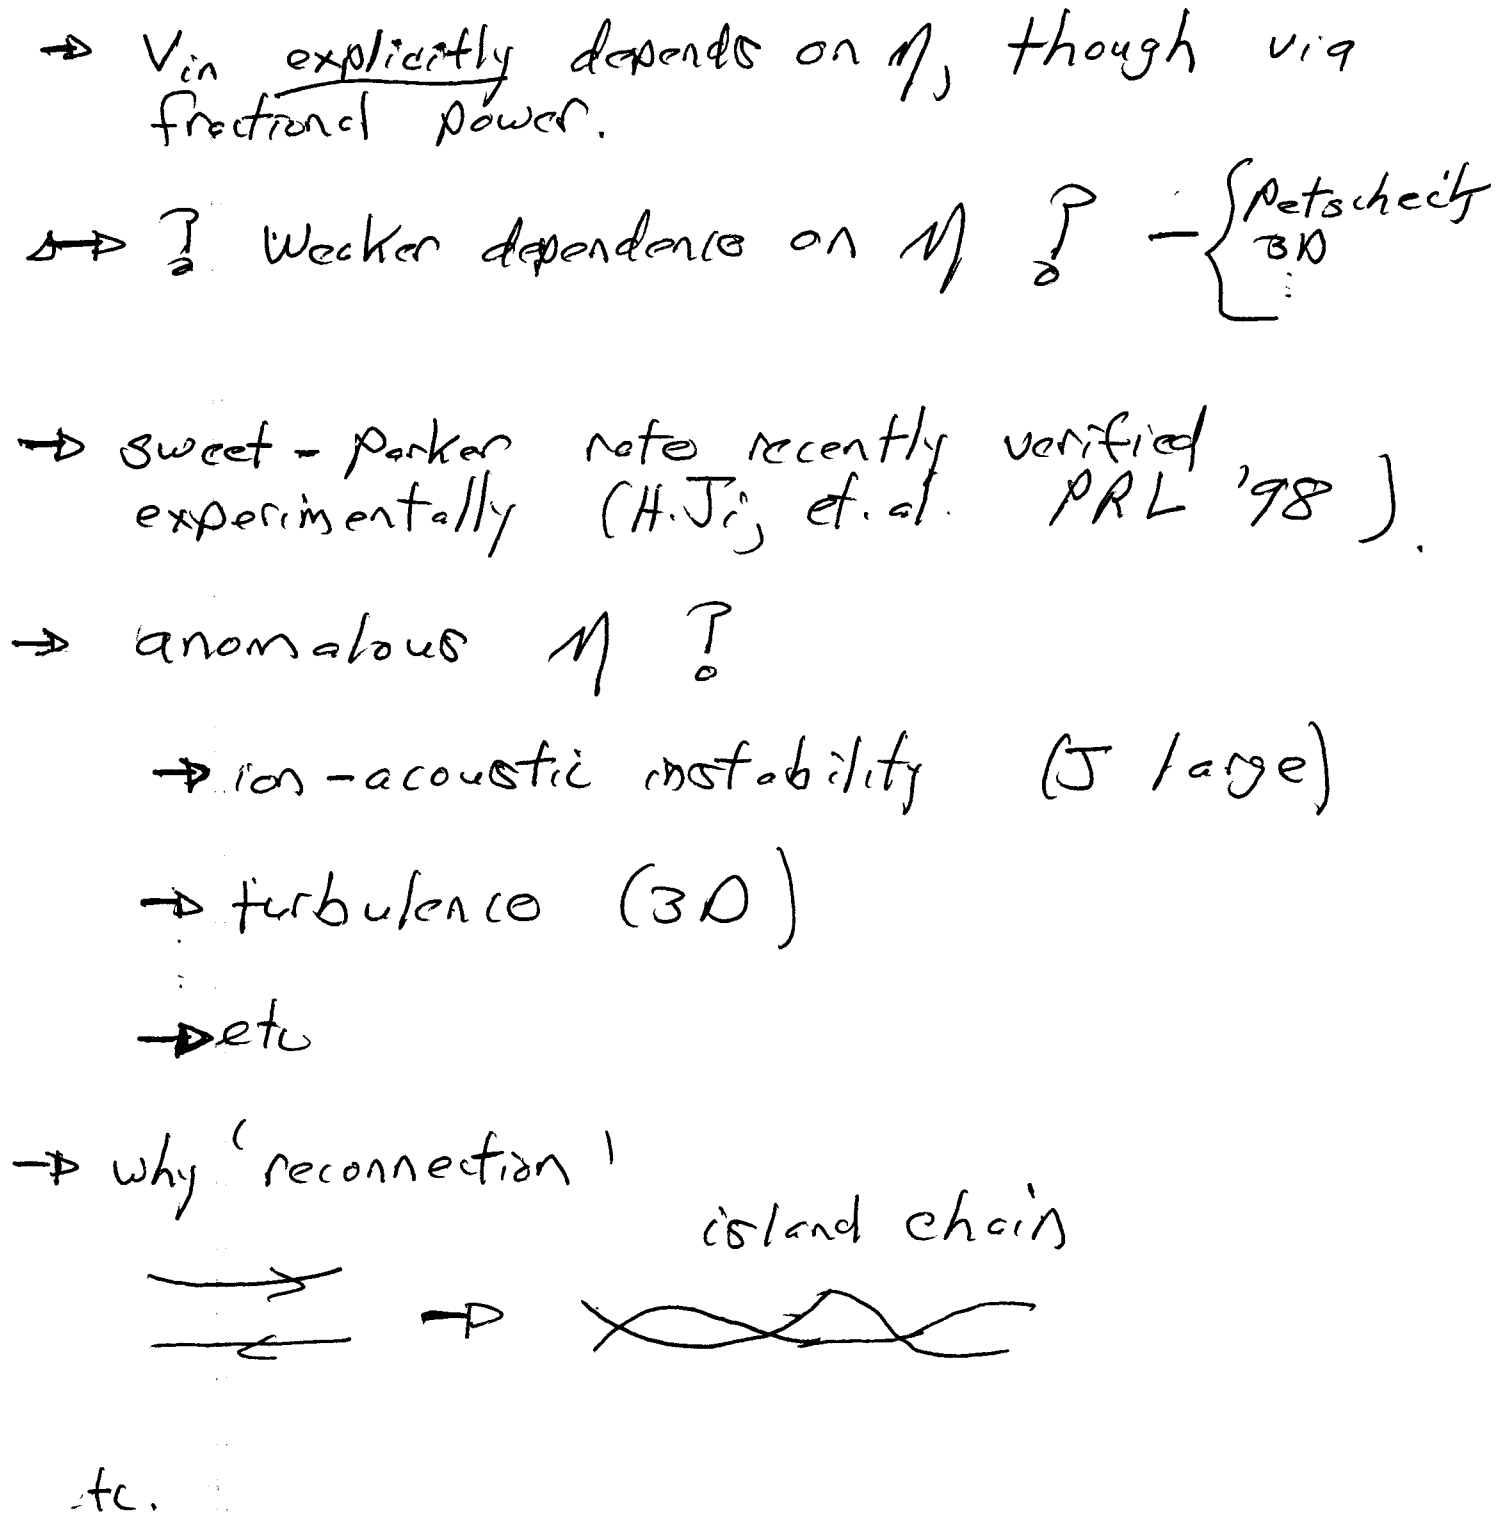 → Vin explicitly depends on η, though via
fractional power.
↔ ? Weaker dependence on η ? - { Petscheck
3D
⋮
→ Sweet-Parker rate recently verified
experimentally (H. Ji, et. al. PRL '98).
→ anomalous η ?
→ ion-acoustic instability (J large)
→ turbulence (3D)
→ etc
→ why 'reconnection'
island chain
→
etc.